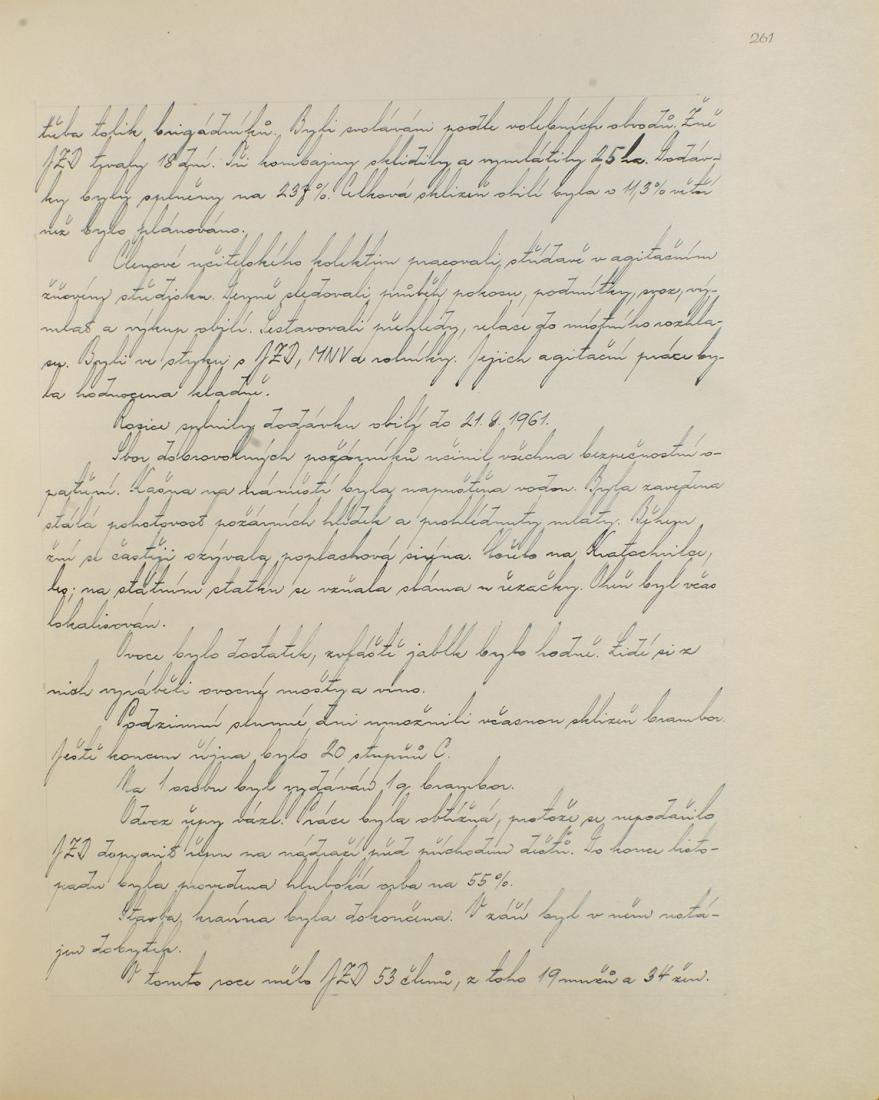 261
třeba tolik brigádníků. Byli svoláváni podle volebných obvodů. Žně
JZD trvaly 18 dní. Tři kombajny sklidily a vymlátily 25 ha. Dodáv-
ky byly splněny na 237%. Celková sklizeň obilí byla o 11,3% větší
než bylo plánováno.
Členové učitelského kolektivu pracovali střídavě v agitačním
žňovém středisku. Denně sledovali průběh pokosu, podmítky, svoz, vý-
mlat a výkup obilí. Sestavovali přehledy, relace do místního rozhla-
su. Byli ve styku s JZD, MNV a rolníky. Jejich agitační práce by-
la hodnocena kladně.
Rosice splnily dodávku obilí do 21.8.1961.
Sbor dobrovolných požárníků učinil všechna bezpečnostní o-
patření. Kašna na náměstí byla napuštěna vodou. Byla zavedena
stálá pohotovost požárních hlídek a prohlédnuty mlaty. Během
žní se častěji ozývala poplachová siréna. Hořelo na Kratochvilce,
les; na státním statku se vzňala sláma u řezačky. Oheň byl včas
lokalisován.
Ovoce bylo dostatek, zvláště jablk bylo hodně. Lidé si z
nich vyráběli ovocné mošty a víno.
Podzimní slunné dni umožnili včasnou sklizeň brambor.
Ještě koncem října bylo 20 stupňů C.
Na 1 osobu byl vydáván 1 q brambor.
Odvoz řepy vázl. Práce byla obtížná, protože se nepodařilo
JZD dopravit řepu na nádraží před příchodem dešťů. Do konce listo-
padu byla provedena hluboká orba na 55%.
Stavba kravína byla dokončena. V září byl v něm ustá-
jen dobytek.
V tomto roce mělo JZD 53 členů, z toho 19 mužů a 34 žen.